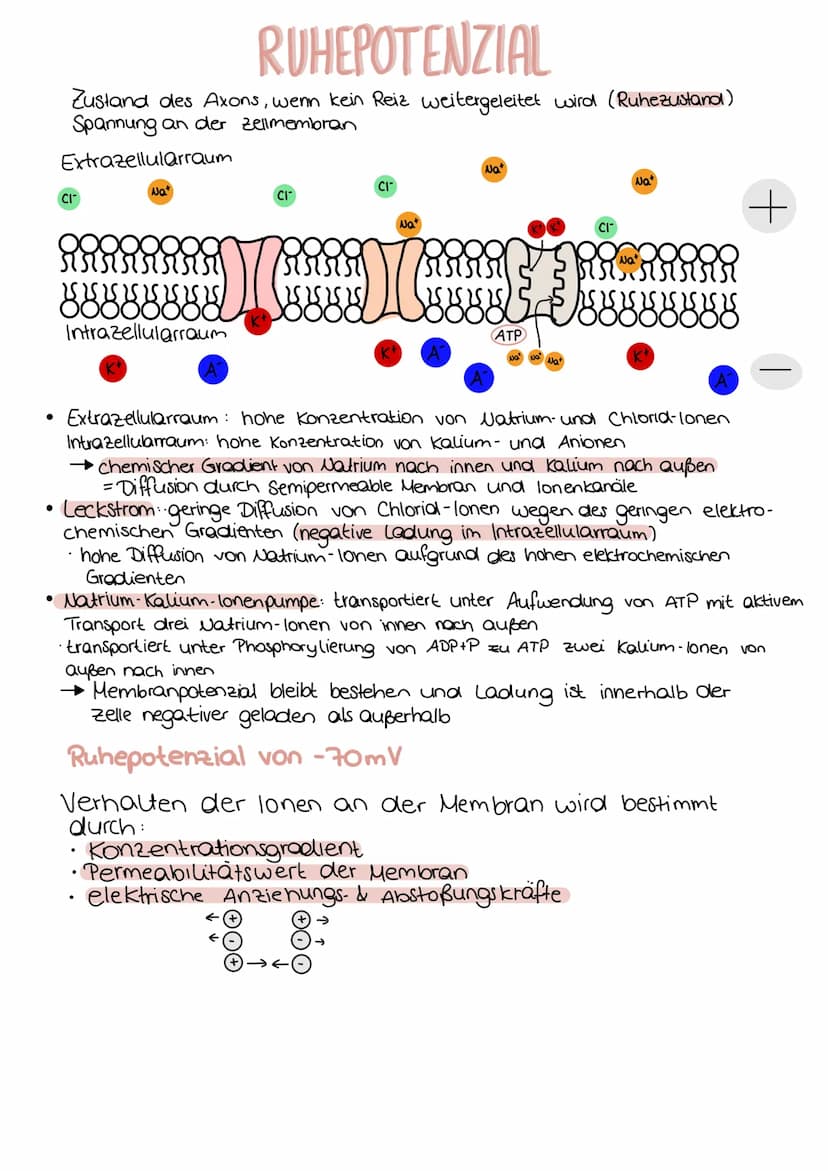 RUHEPOTENZIAL
Zustand des Axons, wenn kein Reiz weitergeleitet wird (Ruhezustand)
Spannung an der Zellmembran
Extrazellularraum
Cl⁻ Na⁺ Cl⁻ Cl⁻ Na⁺ Na⁺
Na⁺ K⁺ K⁺ Cl⁻ +
Na⁺
K⁺
Intrazellularraum
ATP
K⁺ A⁻ K⁺ A⁻ A⁻ Na⁺ Na⁺ Na⁺ K⁺ A⁻ −
• Extrazellularraum: hohe Konzentration von Natrium- und Chlorid-Ionen
Intrazellularraum: hohe Konzentration von Kalium- und Anionen
→ chemischer Gradient von Natrium nach innen und Kalium nach außen
= Diffusion durch Semipermeable Membran und Ionenkanäle
• Leckstrom: geringe Diffusion von Chlorid-Ionen wegen des geringen elektro-
chemischen Gradienten (negative Ladung im Intrazellularraum)
· hohe Diffusion von Natrium-Ionen aufgrund des hohen elektrochemischen
Gradienten
• Natrium-Kalium-Ionenpumpe: transportiert unter Aufwendung von ATP mit aktivem
Transport drei Natrium-Ionen von innen nach außen
· transportiert unter Phosphorylierung von ADP+P zu ATP zwei Kalium-Ionen von
außen nach innen
→ Membranpotenzial bleibt bestehen und Ladung ist innerhalb der
Zelle negativer geladen als außerhalb
Ruhepotenzial von -70mV
Verhalten der Ionen an der Membran wird bestimmt
durch:
· Konzentrationsgradient
· Permeabilitätswert der Membran
· elektrische Anziehungs- & Abstoßungskräfte
← + + →
← - - →
+ → ← -